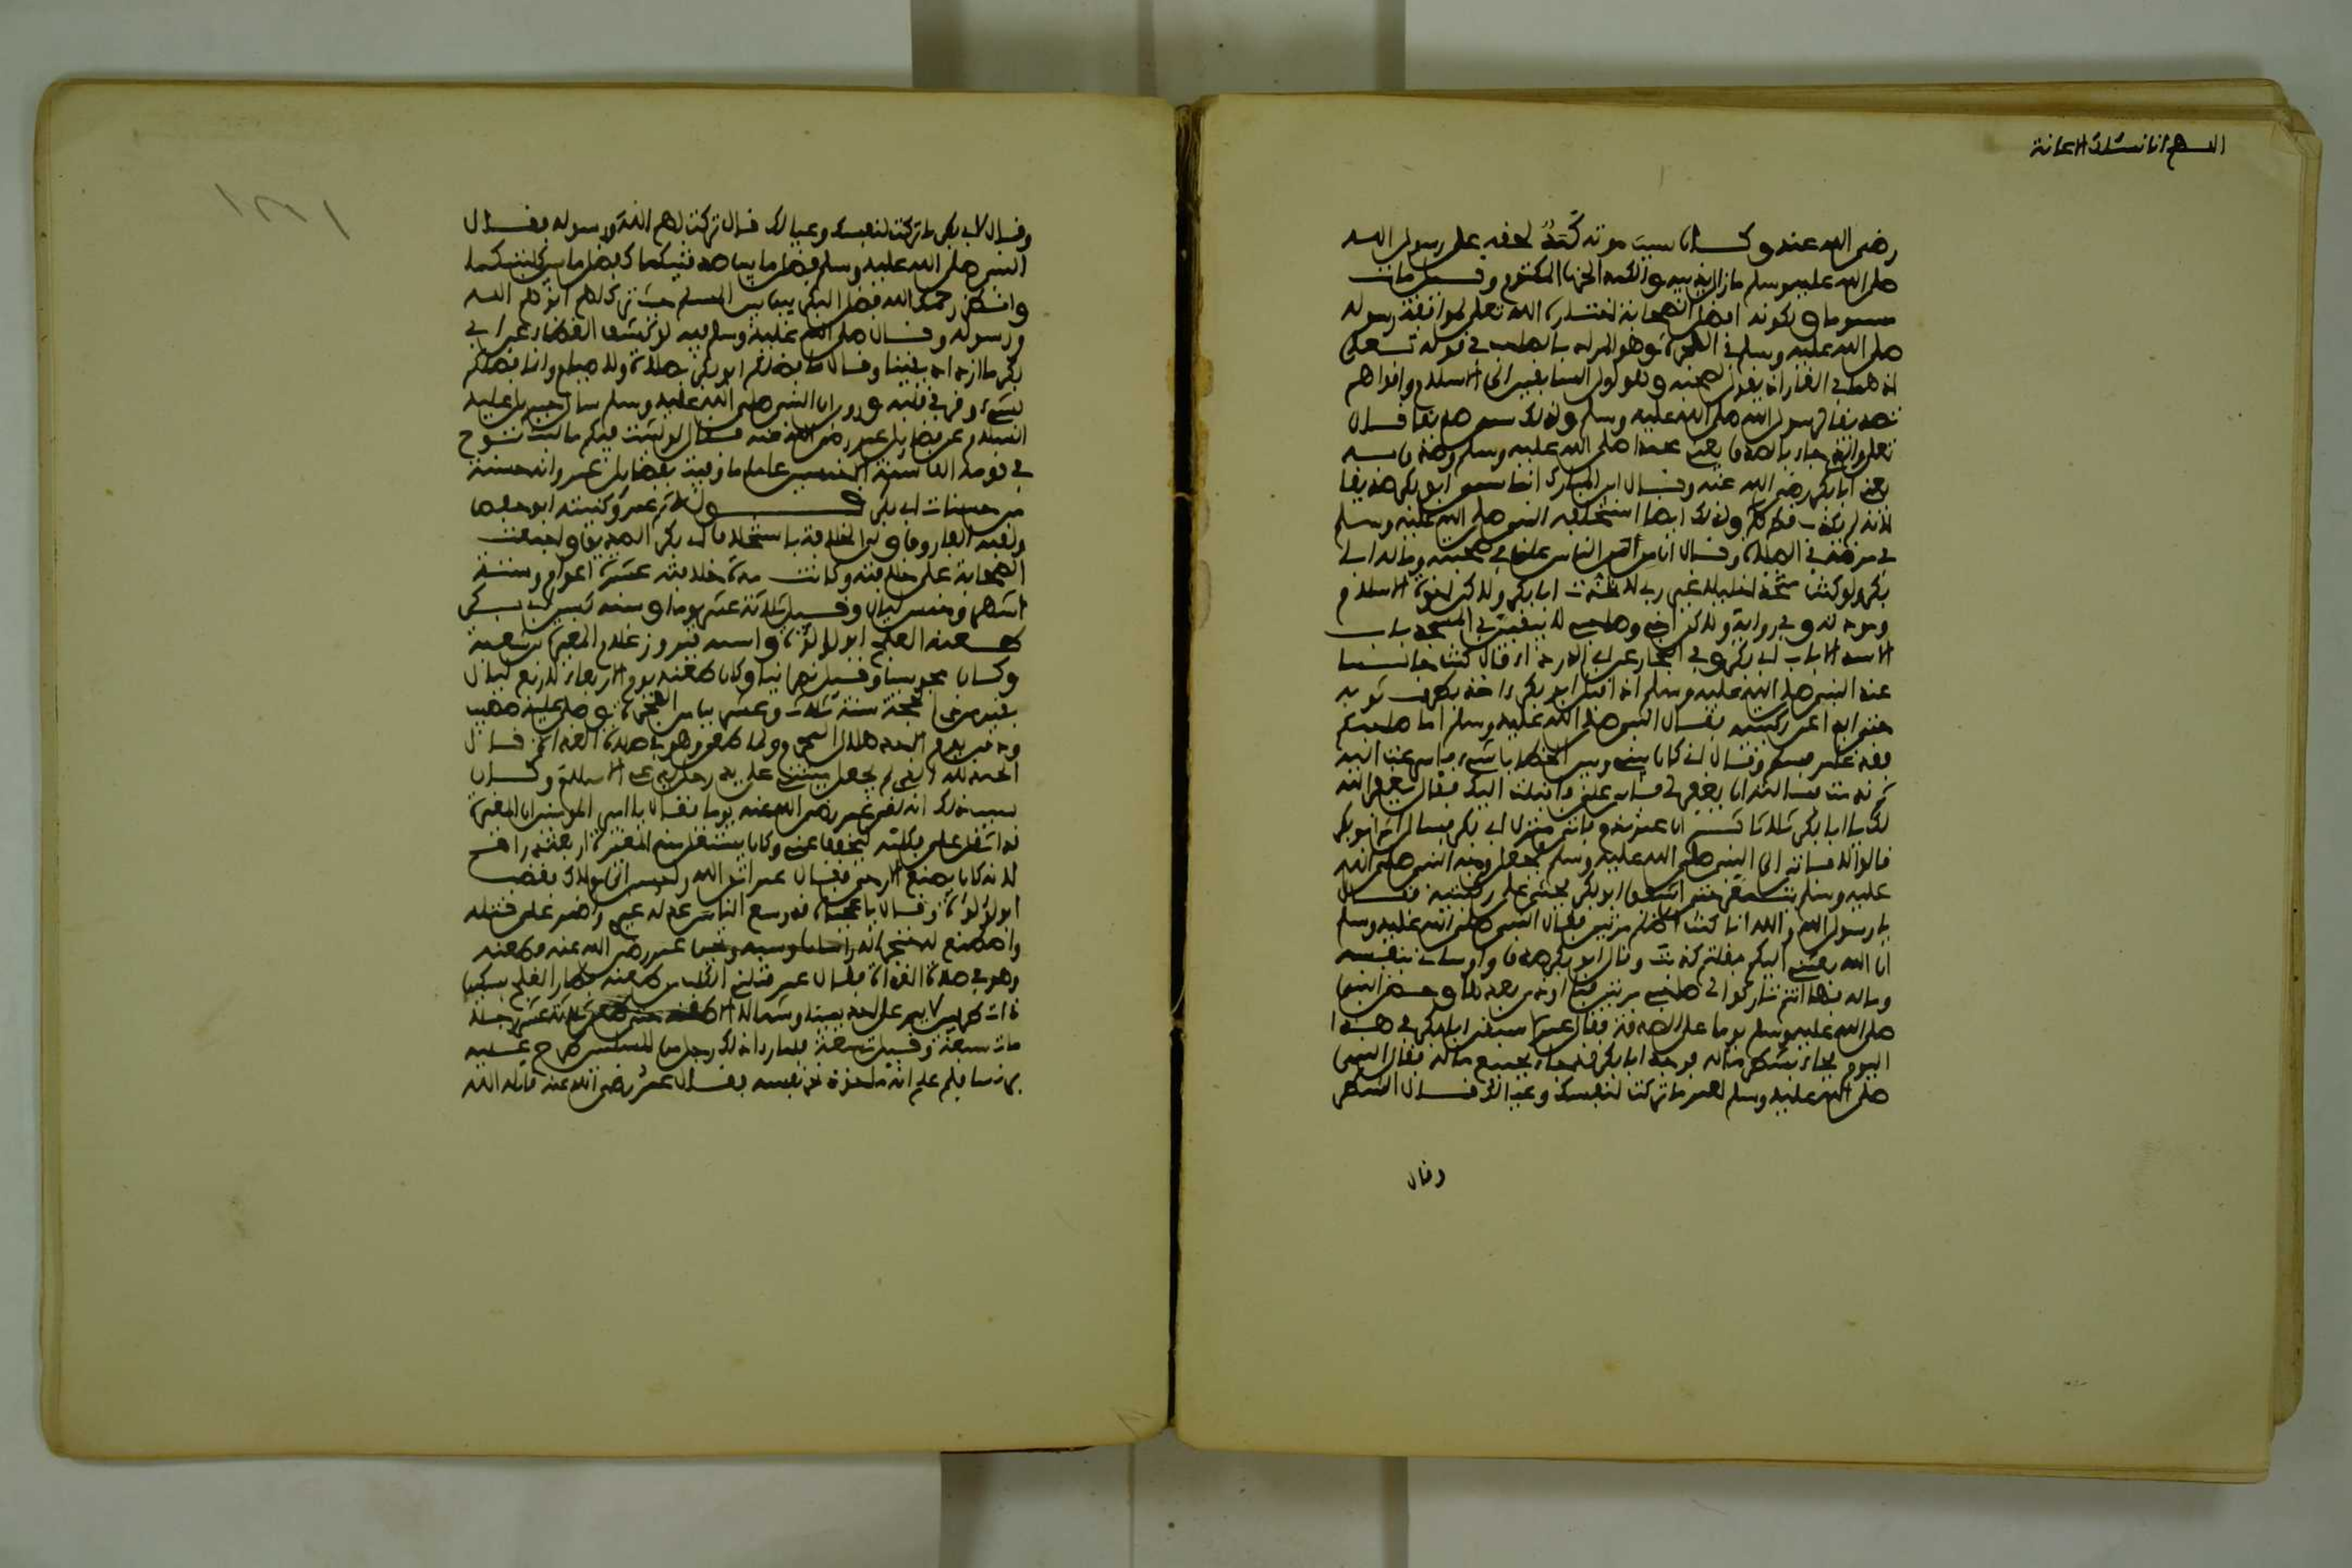 اللهم انا نسئلك الاعانة
رضي الله عنه وكان سبب موته كمد لحفه على رسول الله
صلى الله عليه وسلم مازال يذيبه والكمد الحزن المكتوم وقيل مات
مسموما ولكونه افضل الصحابة اختاره الله تعلى لمرافقة رسوله
صلى الله عليه وسلم في الهجرة وهو المراد بالصاحب في قوله تعلى
اذ هما في الغار اذ يقول لصحبه وهو اول السابقين الى الاسلام واقواهم
تصديقا لرسول الله صلى الله عليه وسلم ولذلك سمي صديقا قال
تعلى والذي جاء بالصدق يعني محمدا صلى الله عليه وسلم وصدق به
يعني ابا بكر رضي الله عنه وقال ابن المبارك انما سمي ابو بكر صديقا
لانه لم يكذب قط ولذلك ايضا استخلفه النبي صلى الله عليه وسلم
في مرضه في الصلاة وقال ان من امن الناس علي في صحبته وماله ابا
بكر ولو كنت متخذا خليلا غير ربي لاتخذت ابا بكر ولاكن اخوة الاسلام
ومودته وفي رواية ولاكن اخي وصاحبي لا يبقين في المسجد باب
الا سد الا باب ابي بكر وفي البخاري عن ابي الدرداء قال كنت جالسا
عند النبي صلى الله عليه وسلم اذ اقبل ابو بكر اخذ بطرف ثوبه
حتى ابدا عن ركبتيه فقال النبي صلى الله عليه وسلم اما صاحبكم
فقد غامر فسلم وقال اني كان بيني وبين ابن الخطاب شيء فاسرعت اليه
ثم ندمت فسالته ان يغفر لي فابى علي فاقبلت اليك فقال يغفر الله
لك يا ابا بكر ثلاثا ثم ان عمر ندم فاتى منزل ابي بكر فسال اثم ابو بكر
قالوا لا فاتى الى النبي صلى الله عليه وسلم فجعل وجه النبي صلى الله
عليه وسلم يتمعر حتى اشفق ابو بكر فجثى على ركبتيه فقال
يا رسول الله والله انا كنت اظلم مرتين فقال النبي صلى الله عليه وسلم
ان الله بعثني اليكم فقلتم كذبت وقال ابو بكر صدق وواساني بنفسه
وماله فهل انتم تاركوا لي صاحبي مرتين فما اوذي بعدها وحض النبي
صلى الله عليه وسلم يوما على الصدقة فقال عمر اسبق ابا بكر في هذا
اليوم فجاء بشطر ماله فوجد ابا بكر قد جاء بجميع ماله فقال النبي
صلى الله عليه وسلم لعمر ما تركت لنفسك وعيالك قال الشطر
وقال
وقال لابي بكر ما تركت لنفسك وعيالك قال تركت لهم الله ورسوله فقال
النبي صلى الله عليه وسلم فضل ما بين صدقتيكما كفضل ما بين كلمتيكما
وانظر رحمك الله فضل ابي بكر بين المسلمين حيث ترك لهم الله
ورسوله وقال صلى الله عليه وسلم فيه لو كشف الغطاء عن ابي
بكر ما ازداد يقينا وقال ما فضلكم ابو بكر بصلاة ولا صيام وانما فضلكم
بشيء وقر في قلبه وروي ان النبي صلى الله عليه وسلم سال جبريل عليه
السلام عن فضايل عمر رضي الله عنه فقال لو لبثت فيكم ما لبث نوح
في قومه الف سنة الا خمسين عاما ما وفيت بفضايل عمر وانه حسنة
من حسنات ابي بكر قوله ثم عمر وكنيته ابو حفص
ولقبه الفاروق ولي الخلافة باستخلاف ابي بكر الصديق واجمعت
الصحابة على خلافته وكانت مدة خلافته عشرة اعوام وستة
اشهر وخمس ليال وقيل ثلاثة عشر يوما
طعنه العلج ابو لؤلؤة واسمه فيروز غلام المغيرة بن شعبة
وكان مجوسيا وقيل نصرانيا وكان طعنه يوم الاربعاء لاربع ليال
بقين من ذي الحجة سنة ثلاث وعشرين من الهجرة وصلى عليه صهيب
ودفن يوم الاحد هلال المحرم ولما طعن وهو في صلاة الغداة قال
الحمد لله الذي لم يجعل ميتتي على يد رجل يدعي الاسلام وكان
سبب ذلك انه لقي عمر رضي الله عنه يوما فقال يا امير المومنين ان المغيرة
قد اثقل علي فكلمه يخفف عني وكان يستغل منه المغيرة اربعة دراهم
لانه كان يصنع الارحى فقال عمر اتق الله واحسن الى مولاك فغضب
ابو لؤلؤة وقال يا عجبا قد وسع الناس عدله غيري واضمر على قتله
واصطنع له خنجرا له راسان وسمه وتحين عمر رضي الله عنه فطعنه
وهو في صلاة الغداة فقال عمر قتلني الكلب حين طعنه فطار العلج بسكين
ذات طرفين لا يمر على احد يمينا وشمالا الا طعنه حتى طعن ثلاثة عشر رجلا
مات سبعة وقيل تسعة فلما راى ذلك رجل من المسلمين طرح عليه
برنسا فلما علم انه ماخوذ نحر نفسه فقال عمر رضي الله عنه قاتله الله